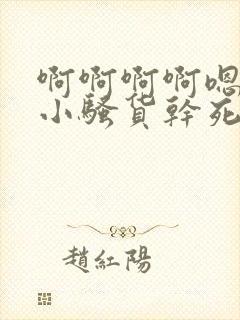 啊啊啊啊嗯
小騷货幹死
趙紅陽